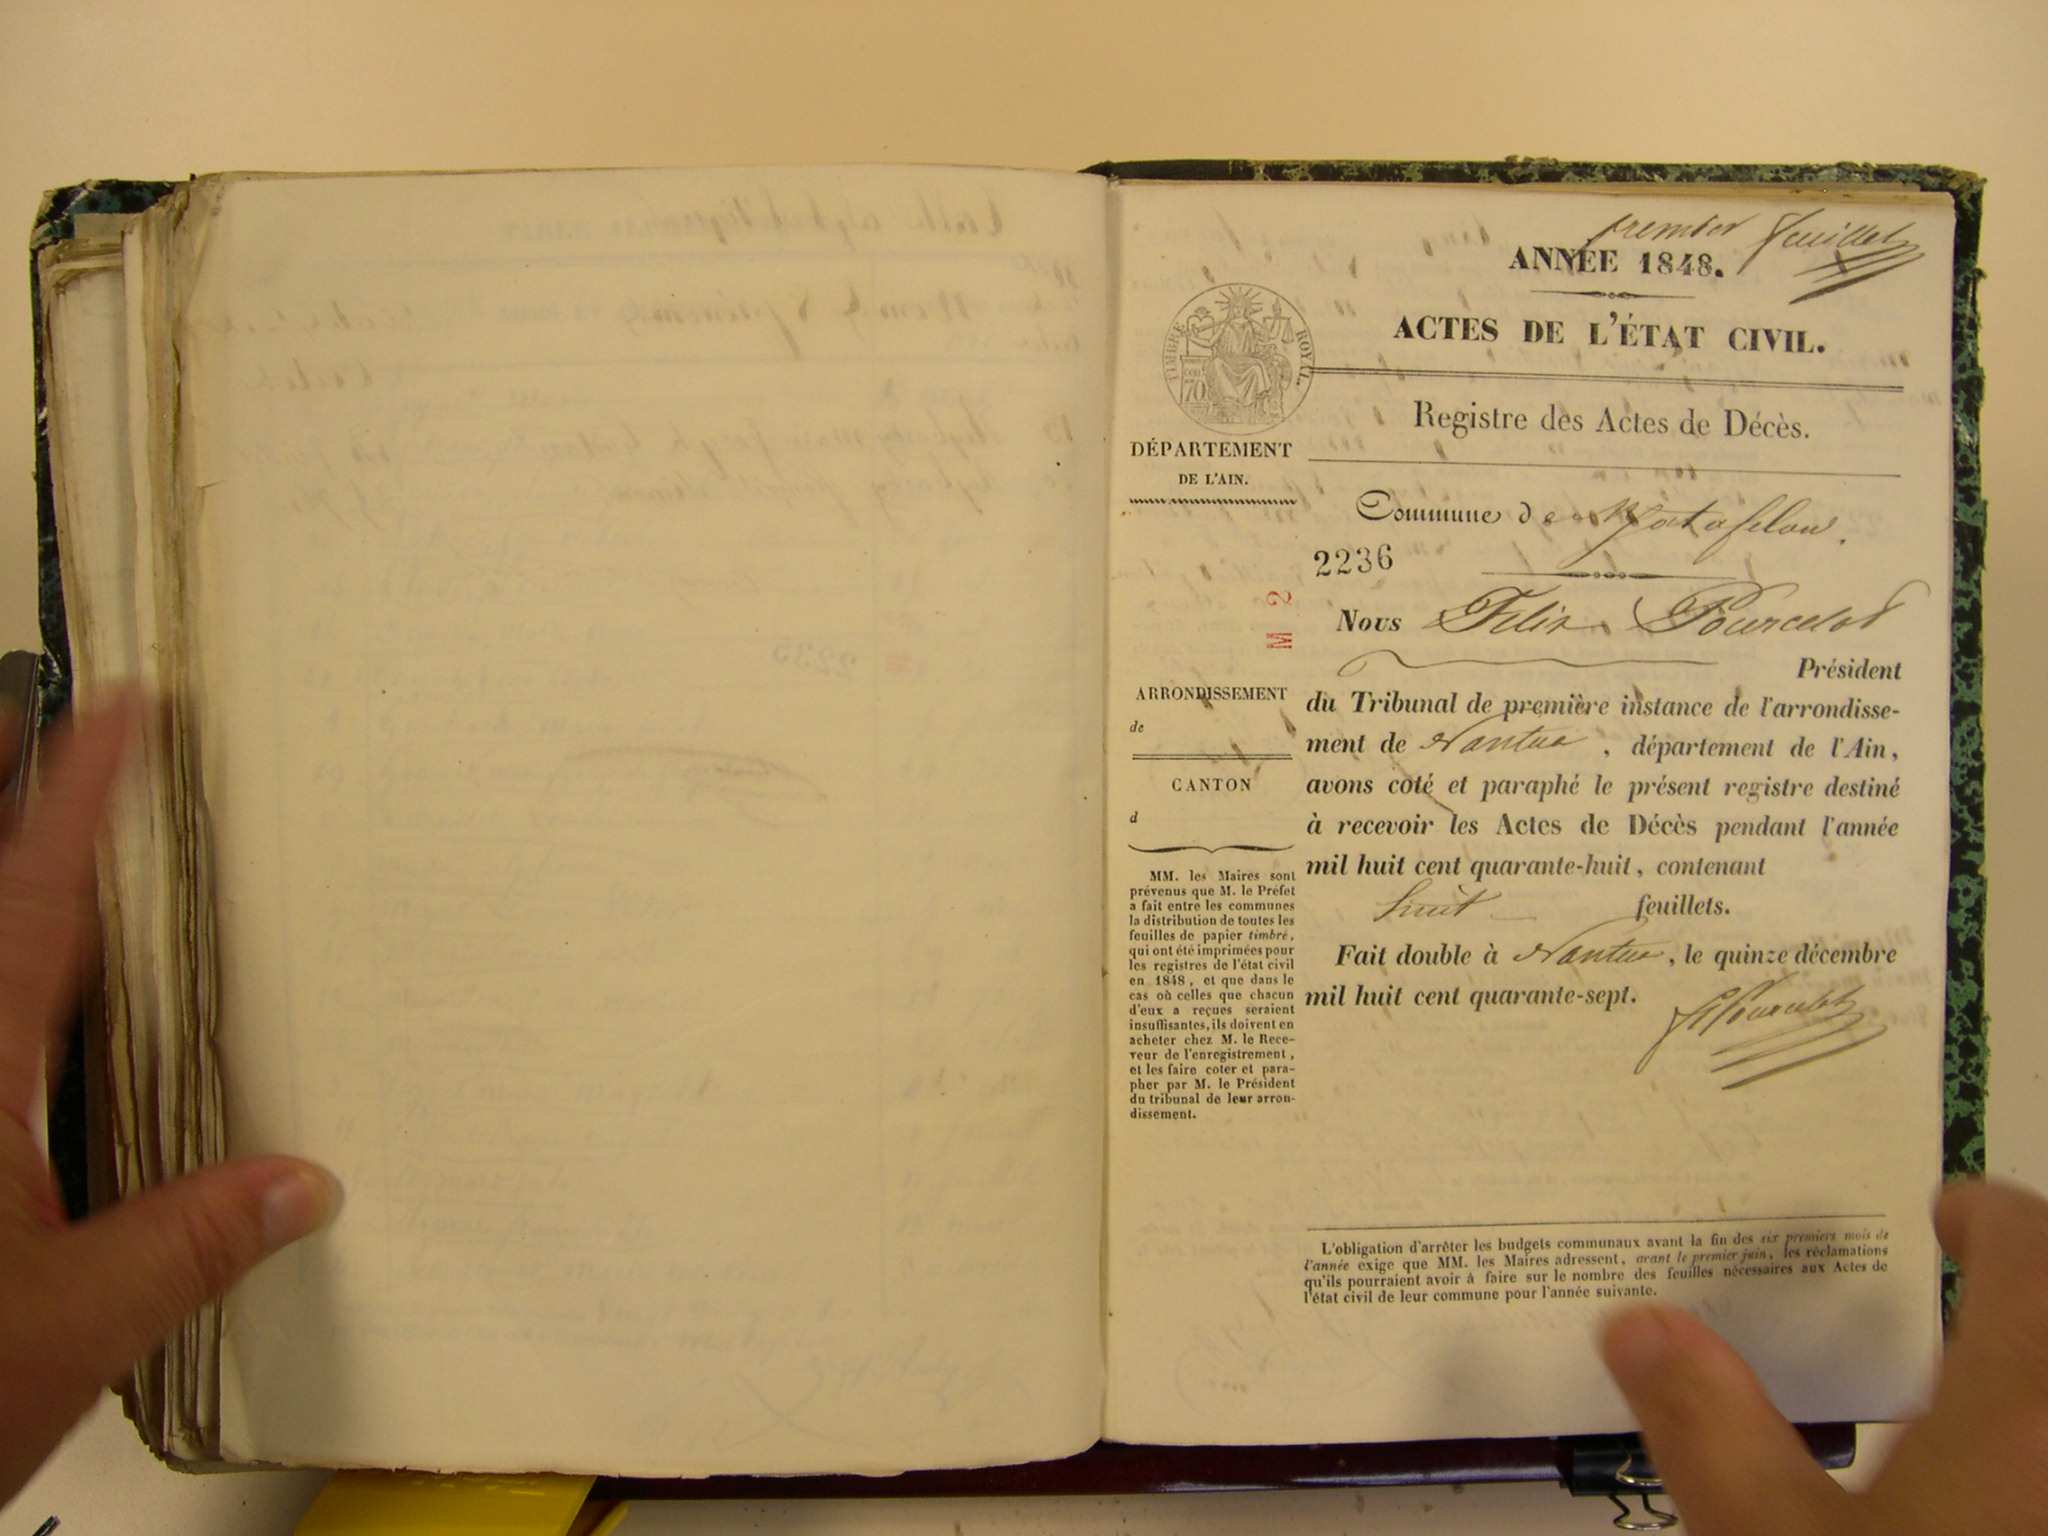 premier feuillet
ANNÉE 1848.
ACTES DE L'ÉTAT CIVIL.
TIMBRE ROYAL
70
Registre des Actes de Décès.
DÉPARTEMENT
DE L'AIN.
Commune de Matafelon.
2236
M 2
Nous Félix Pourcelot
Président
du Tribunal de première instance de l'arrondisse-
ment de Nantua, département de l'Ain,
avons coté et paraphé le présent registre destiné
à recevoir les Actes de Décès pendant l'année
mil huit cent quarante-huit, contenant
huit feuillets.
Fait double à Nantua, le quinze décembre
mil huit cent quarante-sept.
ARRONDISSEMENT
de
CANTON
d
MM. les Maires sont
prévenus que M. le Préfet
a fait entre les communes
la distribution de toutes les
feuilles de papier timbré,
qui ont été imprimées pour
les registres de l'état civil
en 1848, et que dans le
cas où celles que chacun
d'eux a reçues seraient
insuffisantes, ils doivent en
acheter chez M. le Rece-
veur de l'enregistrement,
et les faire coter et para-
pher par M. le Président
du tribunal de leur arron-
dissement.
L'obligation d'arrêter les budgets communaux avant la fin des six premiers mois de
l'année exige que MM. les Maires adressent, avant le premier juin, les réclamations
qu'ils pourraient avoir à faire sur le nombre des feuilles nécessaires aux Actes de
l'état civil de leur commune pour l'année suivante.